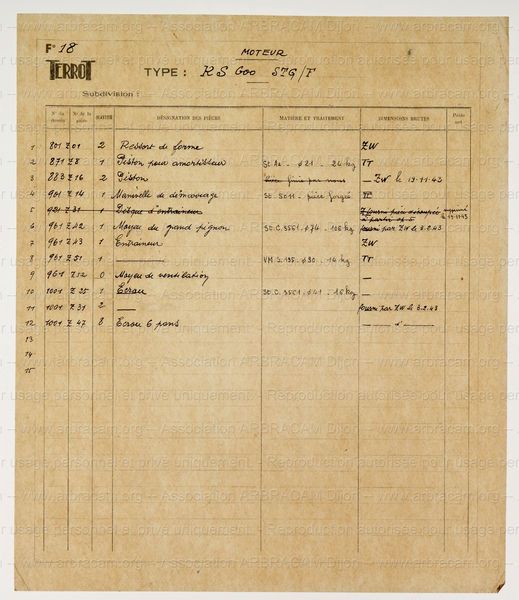 F° 18
MOTEUR
TERROT
TYPE : RS 600 STG/F
Subdivision :
N° du dessin N° de la pièce DÉSIGNATION DES PIÈCES MATIÈRE ET TRAITEMENT DIMENSIONS BRUTES Poids net
1 801 Z 01 2 Ressort de forme ZW
2 871 Z 8 1 Piston pour amortisseur 24 kg TT
3 883 Z 16 2 Piston — ZW le 13.11.43
4 901 Z 14 1 Manivelle de démarrage pièce forgée TT
5 921 Z 31 1 Disque d'entraineur
6 961 Z 42 1 Moyeu de grand pignon St.C.3561 - φ74 - 116 kg fourni par ZW le 3.2.43
7 961 Z 43 1 Entraineur ZW
8 961 Z 51 1 — VM.S.135 - φ30 - 14 kg TT
9 961 Z 52 0 Moyeu de ventilation —
10 1001 Z 25 1 Ecrou St.C.3561 - φ41 - 16 kg —
11 1001 Z 31 2 — fourni par ZW le 3.2.43
12 1001 Z 47 8 Ecrou 6 pans — d° —
13
14
15
www.arbracam.org – Association ARBRACAM Dijon – Reproduction autorisée pour usage personnel et privé uniquement